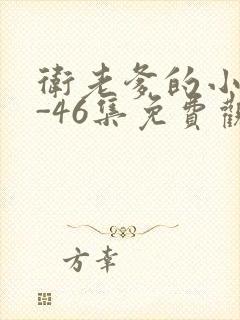 衛老爹的小
-46集免費觀
方幸